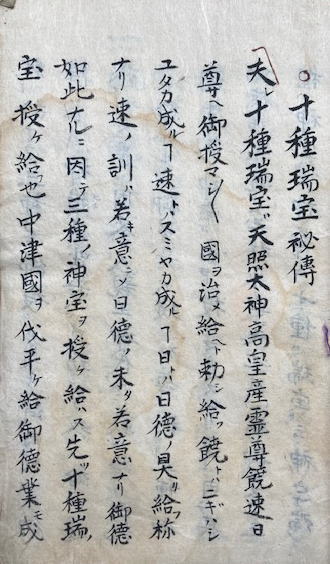 十種瑞宝祕傳
夫レ十種瑞宝ハ天照太神高皇産霊尊饒速日
尊ヘ御授マシ〱國ヲ治メ給ヘト勅シ給フ饒トハニギハシ
ユタカ成ルヿ速トハスミヤカ成ルヿ日トハ日德ノ具リ給フ称
ナリ速ノ訓ハ若キ意ニテ日德ノ未タ若意ナリ御德
如此ナルニ因テ三種ノ神宝ヲ授ケ給ハス先ツ十種瑞ノ
宝授ケ給フ也中津國ヲ伐平ケ給御德業モ成